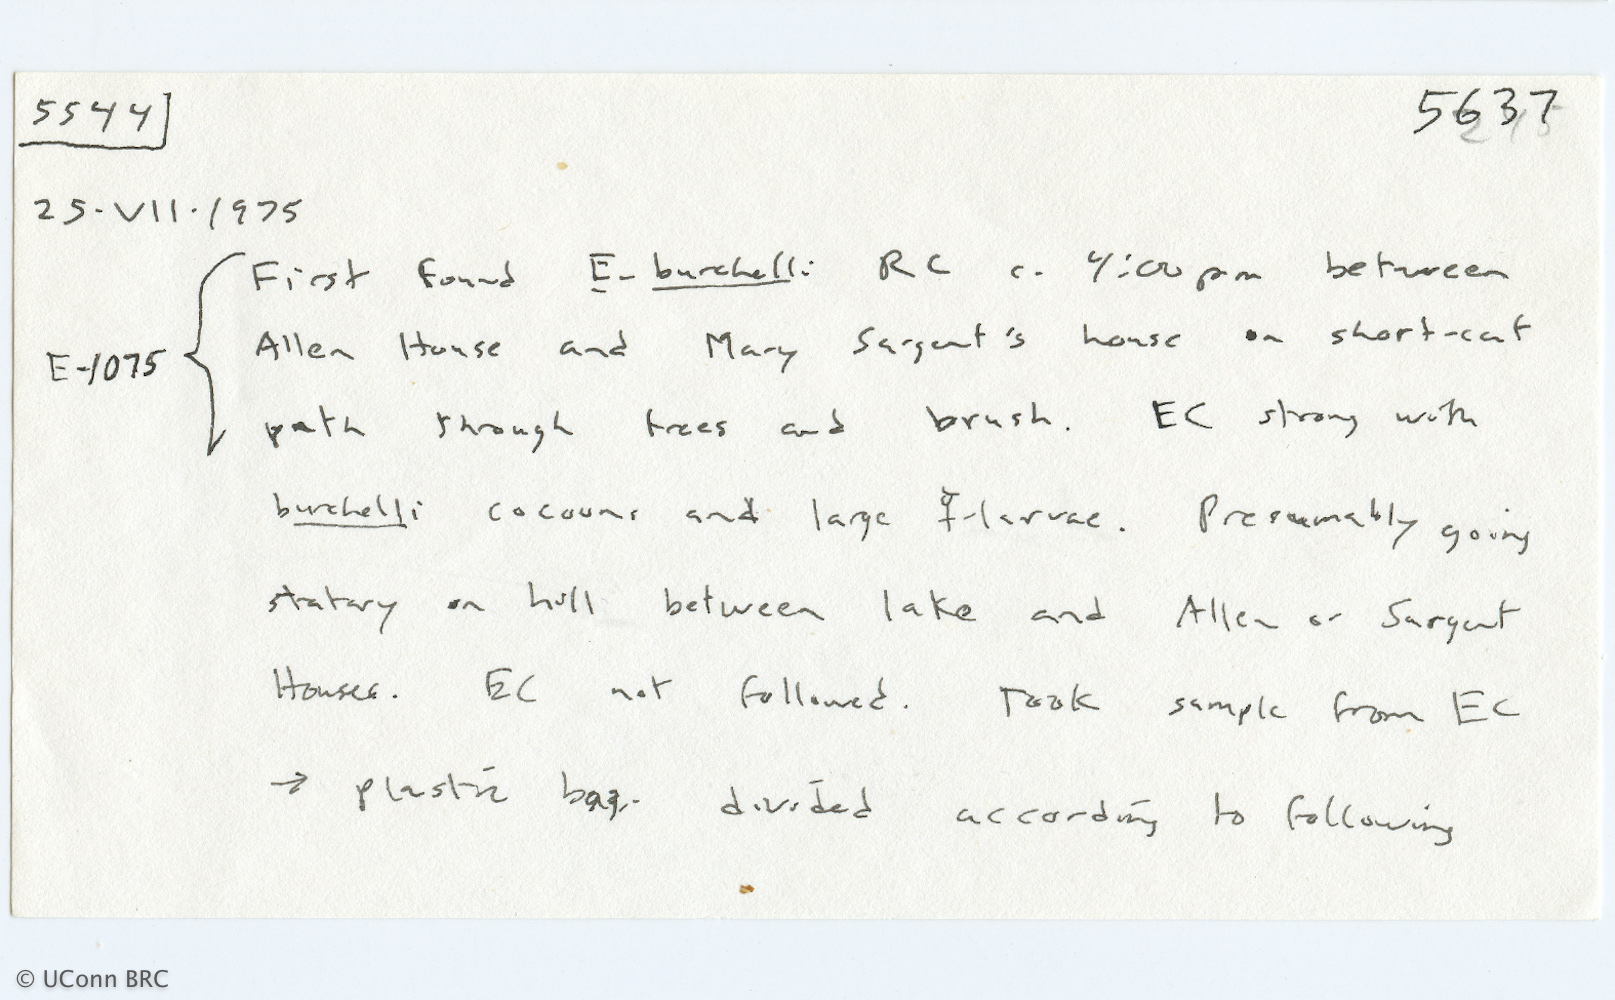 5544
5637
25.VII.1975
First found E. burchelli RC c. 4:00 pm between
Allen House and Mary Sargent's house on short-cut
E-1075
path through trees and brush. EC strong with
burchelli cocoons and large ☿-larvae. Presumably going
statary on hill between lake and Allen or Sargent
Houses. EC not followed. Took sample from EC
→ plastic bag. divided according to following
© UConn BRC